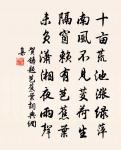 十亩荒池涨绿萍
南风不见芰荷生
隔窗赖有芭蕉叶
未负潇湘夜雨声
贺铸题芭蕉叶词典网
集